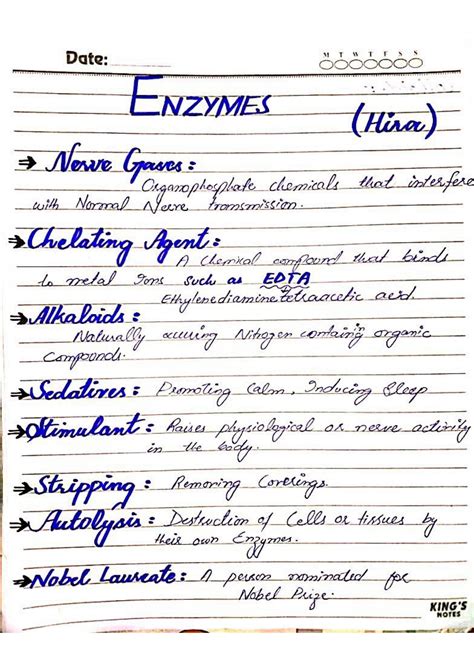 Date:
M T W T F S S
ENZYMES
(Hira)
⇒ Nerve Gases :
Organophosphate chemicals that interfere
with Normal Nerve transmission.
→ Chelating Agent :
A Chemical compound that binds
to metal Ions such as EDTA
Ethylenediaminetetraacetic acid.
→ Alkaloids :
Naturally occuring Nitrogen containing organic
Compounds.
→ Sedatives : Promoting Calm, Inducing Sleep
→ Stimulant : Raises physiological or nerve activity
in the body.
→ Stripping : Removing Coverings.
→ Autolysis : Destruction of Cells or tissues by
their own Enzymes.
→ Nobel Laureate : A person nominated for
Nobel Prize.
KING'S
NOTES